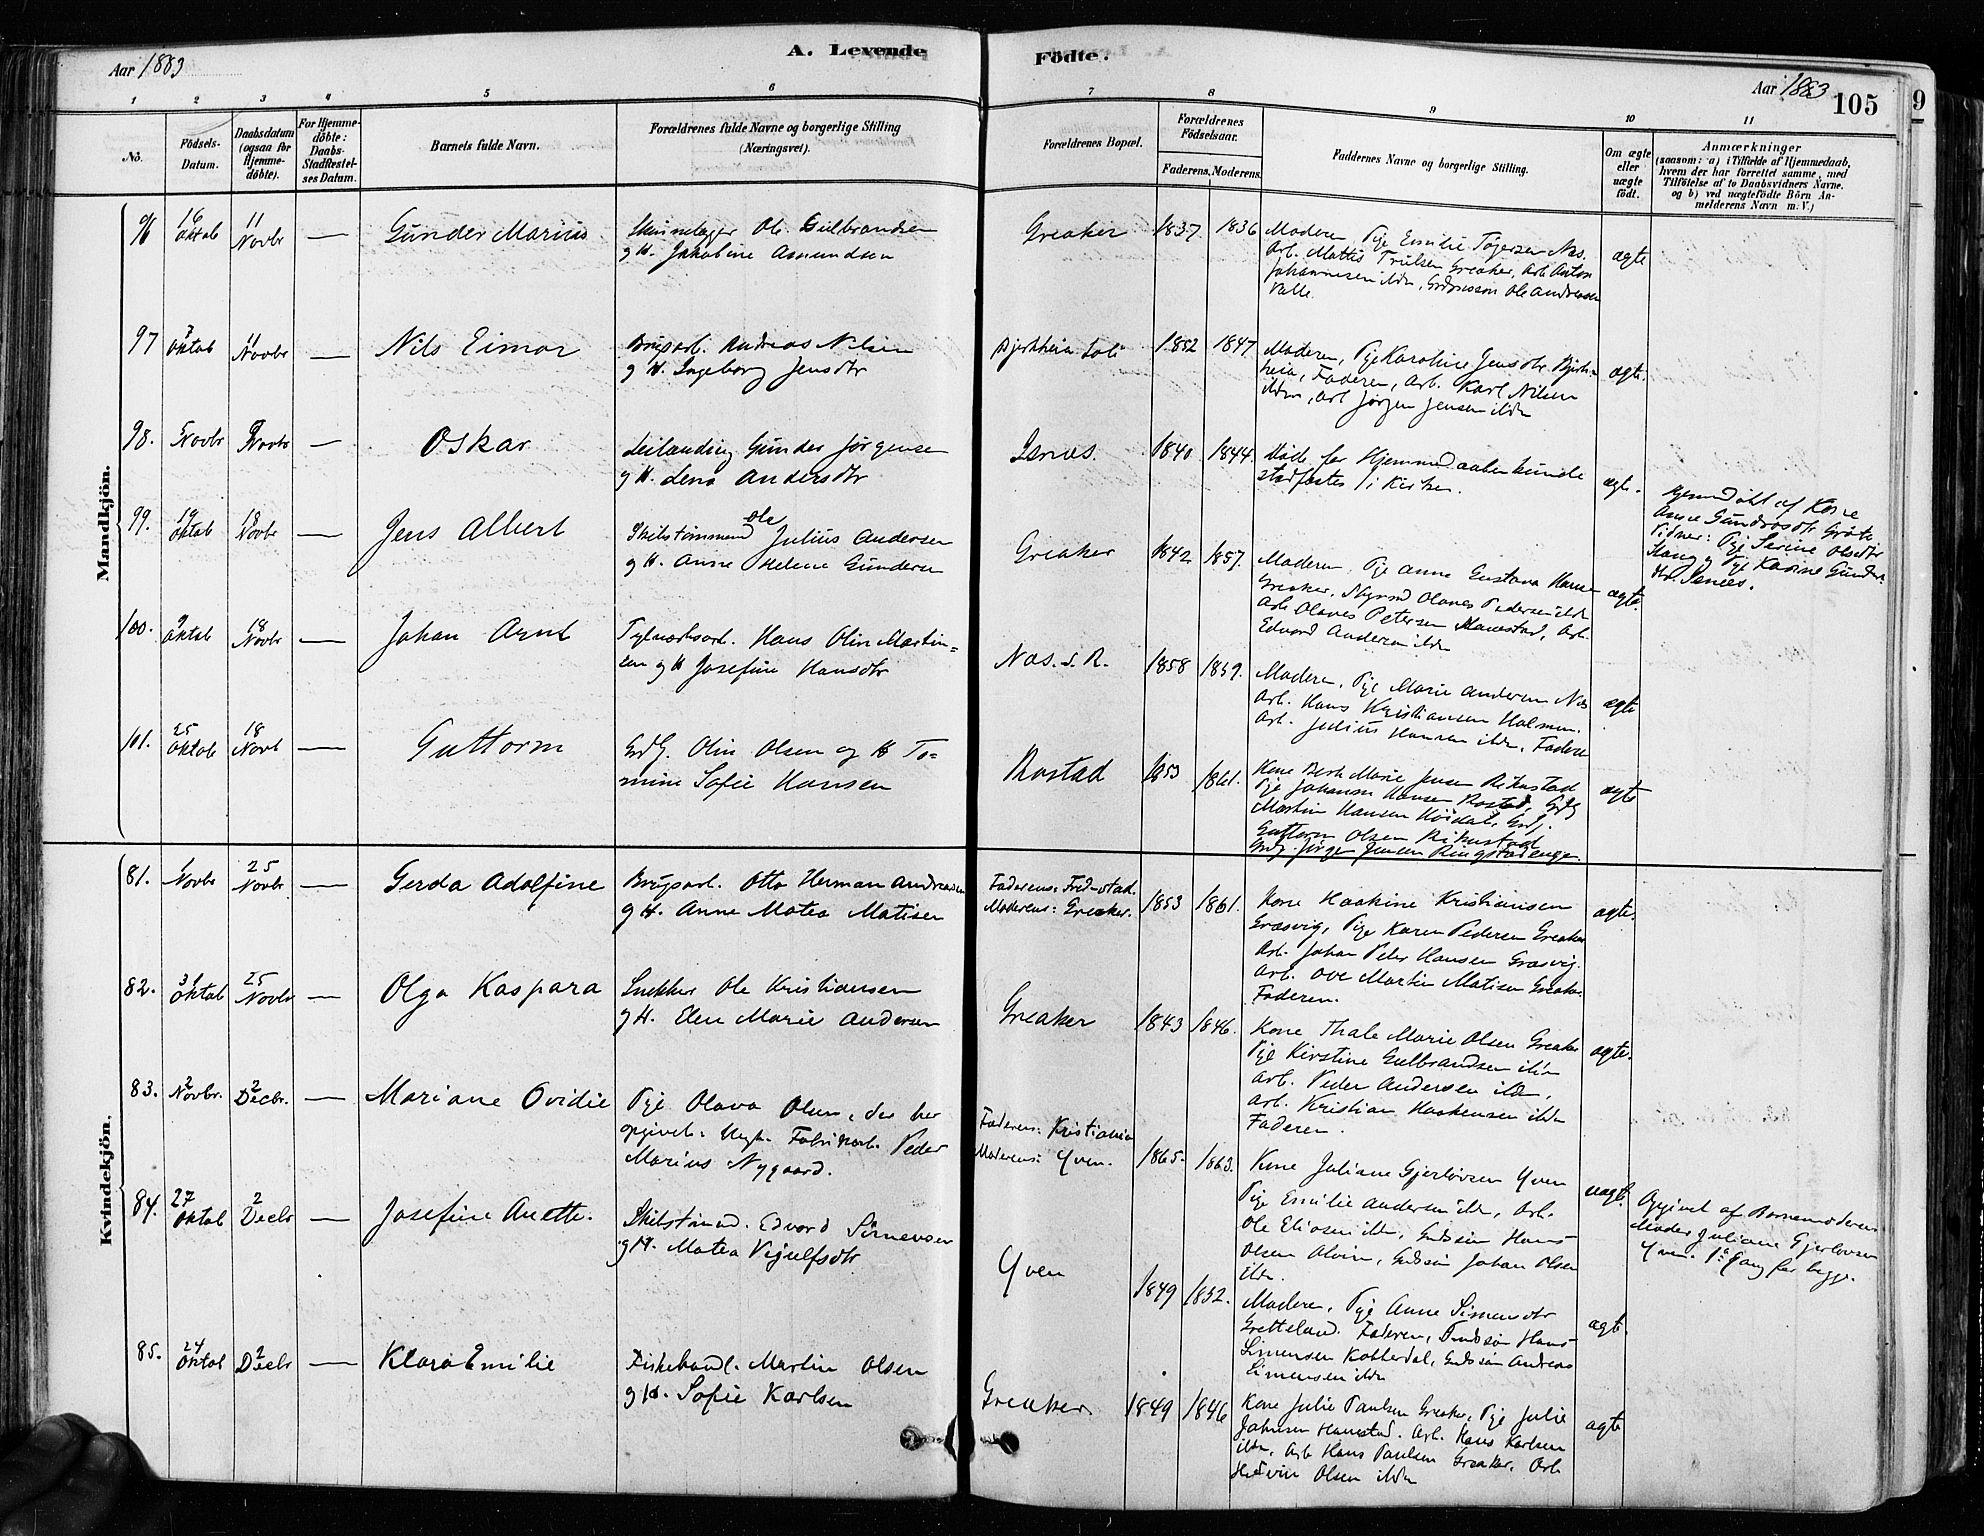 A. Levende
Födte.
Aar 1883
Aar 1883
105
1 2 3 4 5 6
7 8 9 10 11
No.
Födsels-
Datum.
Daabsdatum
(ogsaa for
Hjemme-
döbte).
For Hjemme-
döbte:
Daabs-
Stadfæstel-
ses Datum.
Barnets fulde Navn.
Forældrenes fulde Navne og borgerlige Stilling
(Næringsvei).
Forældrenes Bopæl.
Forældrenes
Födselsaar.
Faderens. Moderens.
Faddernes Navne og borgerlige Stilling.
Om ægte
eller
uægte
födt.
Anmærkninger
(saasom: a) i Tilfælde af Hjemmedaab,
hvem der har forrettet samme, med
Tilföielse af to Daabsvidners Navne.
og b) ved uægtefödte Börn An-
melderens Navn m. V.)
Mandkjön.
96 16 Oktob 11 Novbr — Gunder Marius
Ole Gulbrandsen
og H. Jakobine Amundsen
Greaker 1837 1836
Moderen, Pige Emilie Næs.
Arb. Mattis Trulsen Greaker, Arb Anton
Johannesen ibdm, Ole Andreasen
Valle.
ægte
97 7 Oktob 11 Novbr — Nils Eimar
Brugsarb. Andreas Nilsen
og H. Ingeborg Jensdtr
1852 1847
Moderen, Pige Karoline Jensdtr. Bjerk-
heia, Faderen, Arb. Karl Nilsen
ibdm, Arb Jørgen Jensen ibdm
ægte.
98. 5 Novbr Novbr — Oskar
Leilænding Gunder Jørgensen
og H. Lena Andersdtr
Isnæs. 1840 1844.
Døde før Hjemmedaaben kunde
stadfæstes i Kirken.
ægte.
Hjemmedøbt af Kone
Anne
Vidner: Pige Serine Olsdtr
Pige Karine
Isnæs.
99. 19 Oktob 18 Novbr — Jens Albert
Ole Julius Andersen
og H. Anne Helene Gundersen
Greaker 1842 1857.
Moderen, Pige Anne Gustava
Greaker, Olaves Pedersen ibdm
Arb Olaves Petersen Hannestad, Arb.
Edvard Andersen ibdm
ægte.
100. 9 Oktob 18 Novbr — Johan Arnt
Hans Olin Martin-
sen og H Josefine Hansdtr
Næs. 1858 1859.
Moderen, Pige Marie Andersen Næs
Arb. Hans Kristiansen Holmen.
Arb. Julius Hansen ibdm, Faderen
ægte
101. 25 Oktob 18 Novb — Guttorm
Grdg. Olin Olsen og H To-
mine Sofie Hansen
Rostad 1853 1861.
Kone Marie Jensen
Pige Johanne Hansen Rostad, Grdg
Martin Hansen Grdg.
Guttorm Olsen
Grdg. Jørgen Jensen Ringstadenge.
ægte
Kvindekjön.
81. 1 Novbr 25 Novbr — Gerda Adolfine
Brugsarb. Otto Herman Andreasen
og H. Anne Matea Matisen
Faderens: Fredrstad.
Moderens: Greaker.
1853 1861.
Kone Haakine Kristiansen
Græsvig, Pige Karen Pedersen Greaker
Arb. Johan Peter Hansen Græsvig.
Arb. Ove Martin Matisen Greaker.
Faderen.
ægte.
82. 31 Oktob 25 Novbr — Olga Kaspara
Snekker Ole Kristiansen
og H. Elen Marie Andersen
Greaker 1843 1846.
Kone Thale Marie Olsen Greaker
Pige Kirstine Gulbrandsen ibdm
Arb. Peder Andersen ibdm,
Arb. Kristian Haakensen ibdm
Faderen.
ægte.
83. 2 Novbr. 2 Decbr. — Mariane Ovidie
Pige Olava Olsen, der har
opgivet: Ungk. Fabrikarb. Peder
Marius Nygaard.
Faderens: Kristiania
Moderens: Yven.
1865. 1863.
Kone Juliane Gjerløvsen Yven
Pige Emilie Andersen ibdm, Arb.
Ole Eliasen ibdm, Hans
Olsen Alvim, Johan Olsen
ibdm.
uægte.
Opgivet af Barnemoderens
Moder Juliane Gjerløvsen
Yven. 1ste Gang for begge.
84. 27 Oktob 2 Decbr — Josefine Anette.
Edvard Simensen
og H. Matea
Yven 1849 1852.
Moderen, Pige Anne Simensdtr
Gretteland. Faderen, Hans
Simensen Andreas
Simensen ibdm
ægte.
85. 24 Oktob 2 Decbr — Klara Emilie
Fiskehandl. Martin Olsen
og H. Sofie Karlsen
Greaker. 1849 1846
Kone Julie Paulsen Greaker, Pige Julie
Johnsen Hannestad. Arb. Hans Karlsen
ibdm, Arb Hans Paulsen Greaker, Arb
Olsen ibdm
ægte